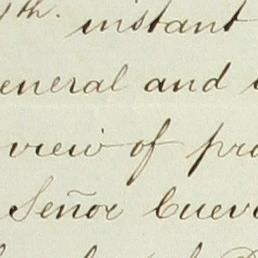 7th. instant
eneral and
view of pro
Señor Cuev